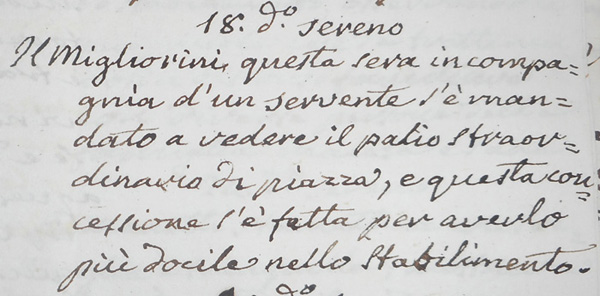 18. d.º sereno
Il Migliorini, questa sera in compa=
gnia d'un servente s'è man=
dato a vedere il palio straor=
dinario di piazza, e questa con=
cessione s'è fatta per averlo
più docile nello Stabilimento.
d.º